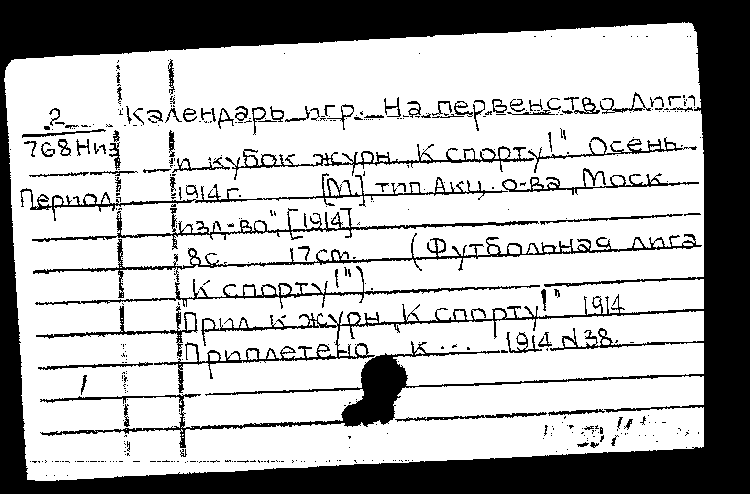 2 Календарь игр. На первенство Лиги
768 Низ
и кубок журн. „К спорту!". Осень
Период
1914 г. [М.], тип. Акц. о-ва „Моск.
изд-во", [1914].
8 с. 17 cm. (Футбольная лига
„К спорту!").
Прил. к журн. „К спорту!" 1914
Приплетено к ... 1914 N 38.
1